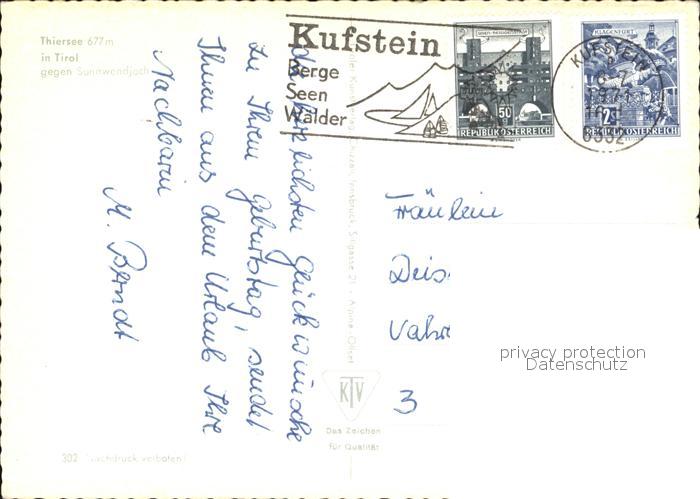 Thiersee 677m
in Tirol
gegen Sunnwendjoch
Kufstein
Berge
Seen
Wälder
50
REPUBLIK ÖSTERREICH
KLAGENFURT
REPUBLIK ÖSTERREICH
KUFSTEIN
1971
6332
Die herzlichsten Glückwünsche
zu Ihrem Geburtstag, sendet
Ihnen aus dem Urlaub Ihre
Nachbarin
M. Berndt
Innsbruck, Sillgasse 21 - Alpine-Offset
Fräulein
Deis
Vahr
3
privacy protection
Datenschutz
KTV
Das Zeichen
für Qualität
302 Nachdruck verboten!